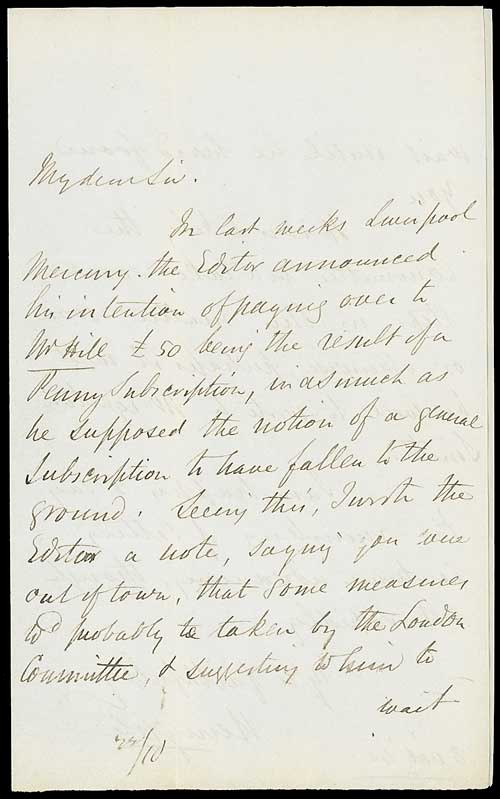 My dear Sir.
In last weeks Liverpool
Mercury the Editor announced
his intention of paying over to
Mr Hill £50 being the result of a
Penny Subscription, in as much as
he supposed the notion of a general
Subscription to have fallen to the
ground. Seeing this, I wrote the
Editor a note, saying you were
out of town, that some measures
wd probably be taken by the London
Committee, & suggesting to him to
wait